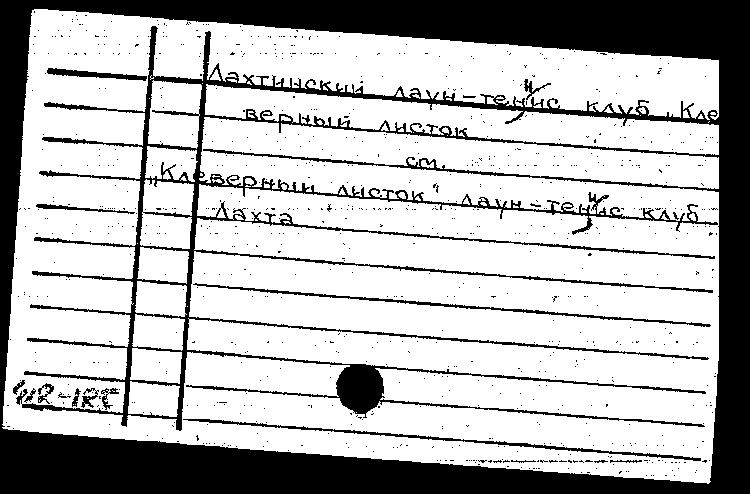 Лахтинский лаун-теннис клуб „Кле
верный листок
см.
„Клеверный листок", лаун-теннис клуб
Лахта